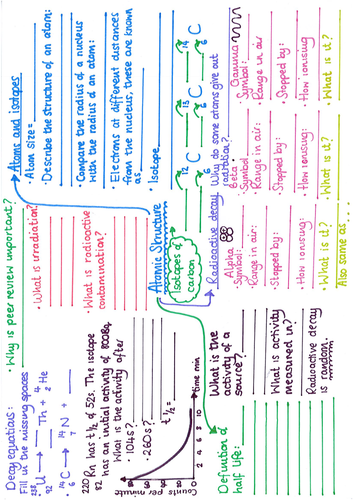 Atoms and isotopes
• Atom size =
• Describe the structure of an atom:
• Compare the radius of a nucleus
with the radius of an atom:
• Electrons at different distances
from the nucleus, these are known
as
• Isotope
• Why is peer review important?
• What is irradiation?
• What is radioactive
contamination?
Decay equations:
Fill in the missing spaces
238 92 U → Th + 4 2 He
14 6 C → 14 7 N +
220 82 Rn has t½ of 52s. The isotope
has an initial activity of 800Bq
What is the activity after
• 104s?
• 260s?
Counts per minute
0 2 4 6 8 10
time min
t½ =
Atomic Structure
Isotopes of
Carbon
12 6 C
13 6 C
14 6 C
Radioactive decay
Why do some atoms give out
radiation?
Alpha
Symbol:
Range in air:
• Stopped by:
• How ionising:
• What is it?
Also same as
Beta
Symbol
Range in air:
• Stopped by:
• How ionising:
• What is it?
Gamma
Symbol:
• Range in air
• Stopped by:
• How ionising
• What is it?
Definition of
half life:
What is the
activity of a
source?
What is activity
measured in?
Radioactive decay
is random.